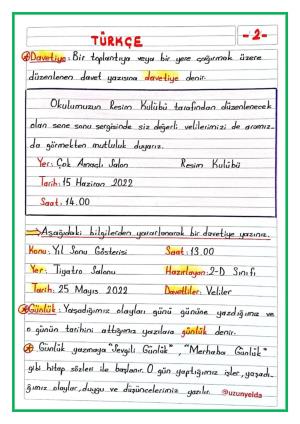 TÜRKÇE
-2-
Davetiye: Bir toplantıya veya bir yere çağırmak üzere
düzenlenen davet yazısına davetiye denir.
Okulumuzun Resim Kulübü tarafından düzenlenecek
olan sene sonu sergisinde siz değerli velilerimizi de aramız-
da görmekten mutluluk duyarız.
Yer: Çok Amaçlı Salon Resim Kulübü
Tarih: 15 Haziran 2022
Saat: 14.00
Aşağıdaki bilgilerden yararlanarak bir davetiye yazınız.
Konu: Yıl Sonu Gösterisi Saat: 13.00
Yer: Tiyatro Salonu Hazırlayan: 2-D Sınıfı
Tarih: 25 Mayıs 2022 Davetliler: Veliler
Günlük: Yaşadığımız olayları günü gününe yazdığımız ve
o günün tarihini attığımız yazılara günlük denir.
Günlük yazmaya "Sevgili Günlük", "Merhaba Günlük"
gibi hitap sözleri ile başlanır. O gün yaptığımız işler, yaşadı-
ğımız olaylar, duygu ve düşüncelerimiz yazılır. @uzunyelda